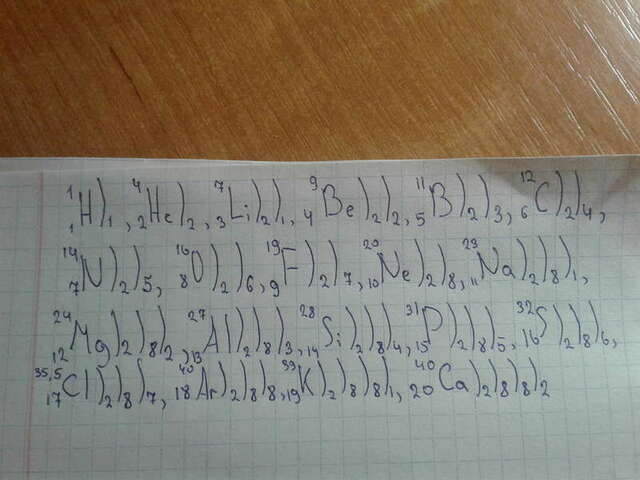 ¹₁H)₁, ⁴₂He)₂, ⁷₃Li)₂)₁, ⁹₄Be)₂)₂, ¹¹₅B)₂)₃, ¹²₆C)₂)₄,
¹⁴₇N)₂)₅, ¹⁶₈O)₂)₆, ¹⁹₉F)₂)₇, ²⁰₁₀Ne)₂)₈, ²³₁₁Na)₂)₈)₁,
²⁴₁₂Mg)₂)₈)₂, ²⁷₁₃Al)₂)₈)₃, ²⁸₁₄Si)₂)₈)₄, ³¹₁₅P)₂)₈)₅, ³²₁₆S)₂)₈)₆,
³⁵,⁵₁₇Cl)₂)₈)₇, ⁴⁰₁₈Ar)₂)₈)₈, ³⁹₁₉K)₂)₈)₈)₁, ⁴⁰₂₀Ca)₂)₈)₈)₂